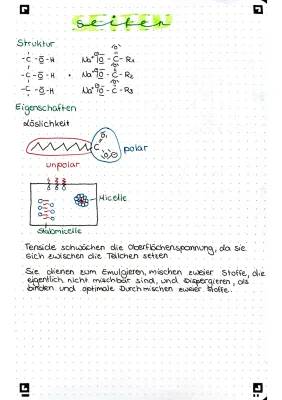 Seifen
Struktur
-C-O-H Na⁺ O-C-R₁
-C-O-H + Na⁺ O-C-R₂
-C-O-H Na⁺ O-C-R₃
Eigenschaften
Löslichkeit
C polar
unpolar
Micelle
Stabmicelle
Tenside schwächen die Oberflächenspannung, da sie
sich zwischen die Teilchen setzen
Sie dienen zum Emulgieren, mischen zweier Stoffe, die
eigentlich nicht mischbar sind, und Dispergieren, als
binden und optimale Durchmischen zweier Stoffe.